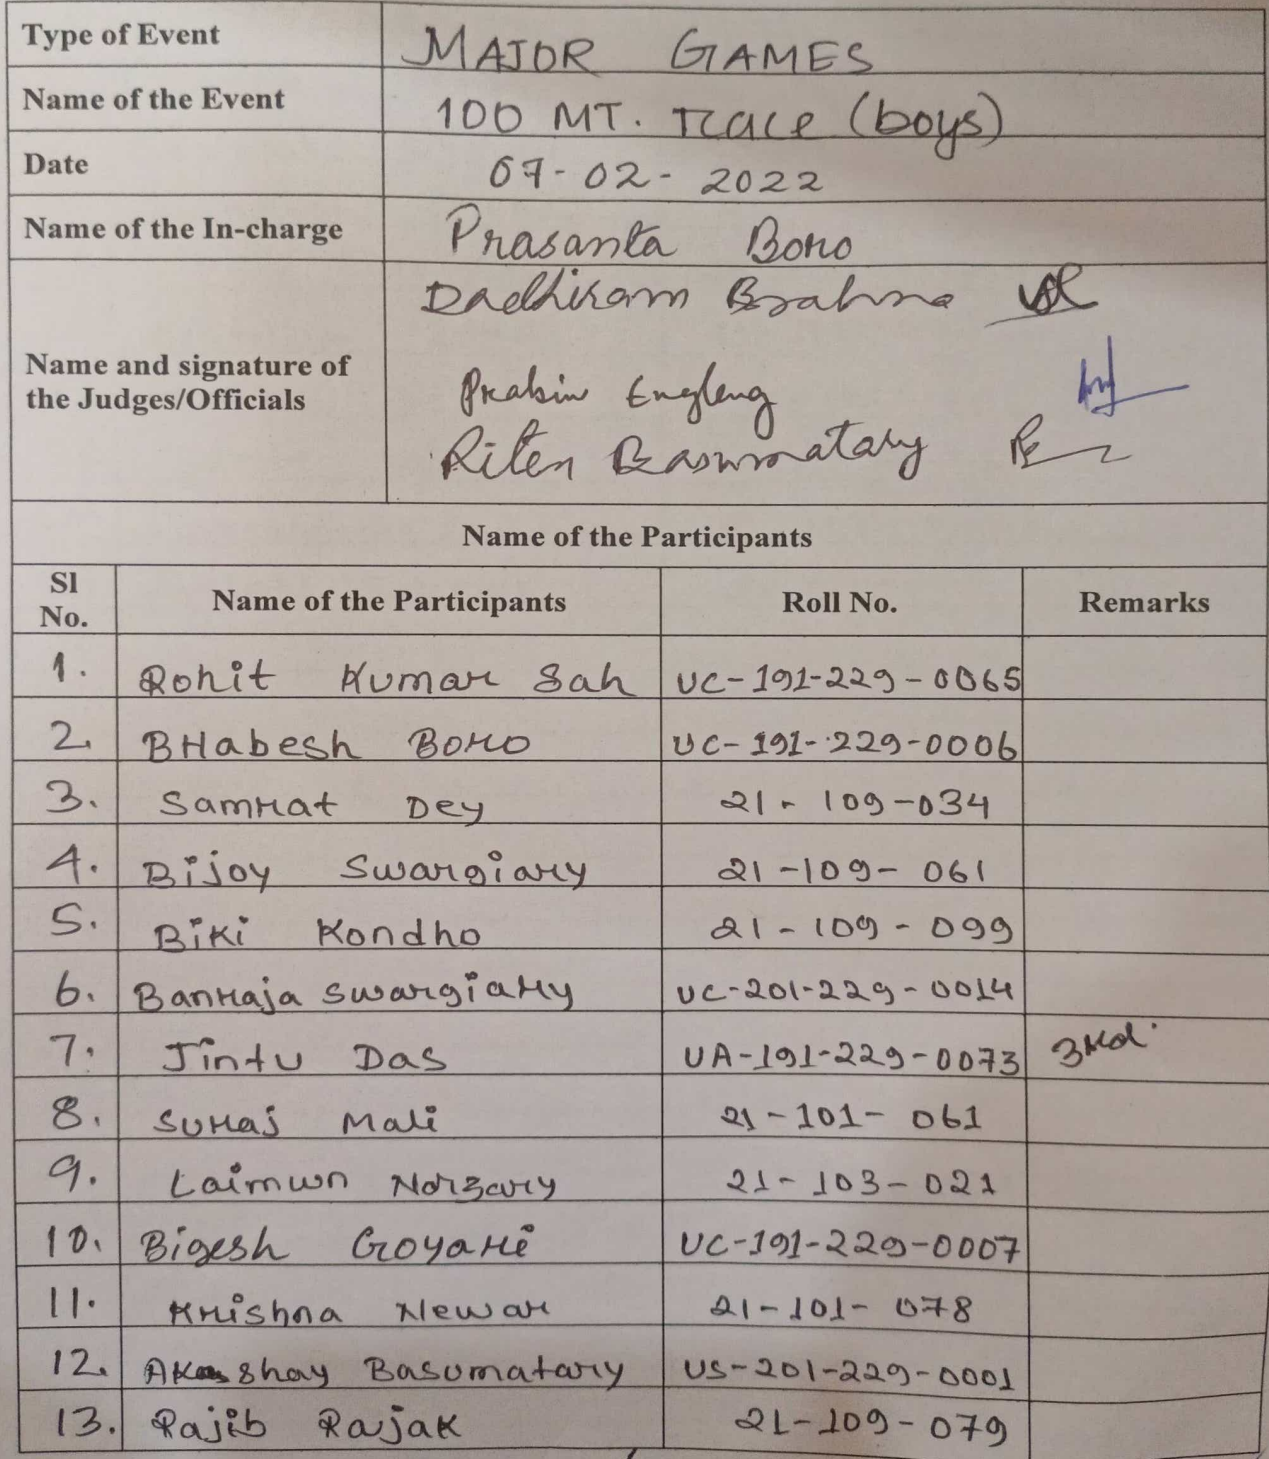 Type of Event MAJOR GAMES
Name of the Event 100 MT. race (boys)
Date 07-02-2022
Name of the In-charge Prasanta Boro
Name and signature of the Judges/Officials
Dadhiram Brahma
Prabin Engleng
Riten Basumatary
Name of the Participants
Sl No. Name of the Participants Roll No. Remarks
1. Rohit Kumar Sah UC-191-229-0065
2. BHabesh Boro UC-191-229-0006
3. Samrat Dey 21-109-034
4. Bijoy Swargiary 21-109-061
5. Biki Kondho 21-109-099
6. Banraja Swargiary UC-201-229-0014
7. Jintu Das UA-191-229-0073 3rd.
8. Suraj Mali 21-101-061
9. Laimwn Narzary 21-103-021
10. Bigesh Goyari UC-191-229-0007
11. Krishna Newar 21-101-078
12. Akashay Basumatary US-201-229-0001
13. Rajib Rajak 21-109-079